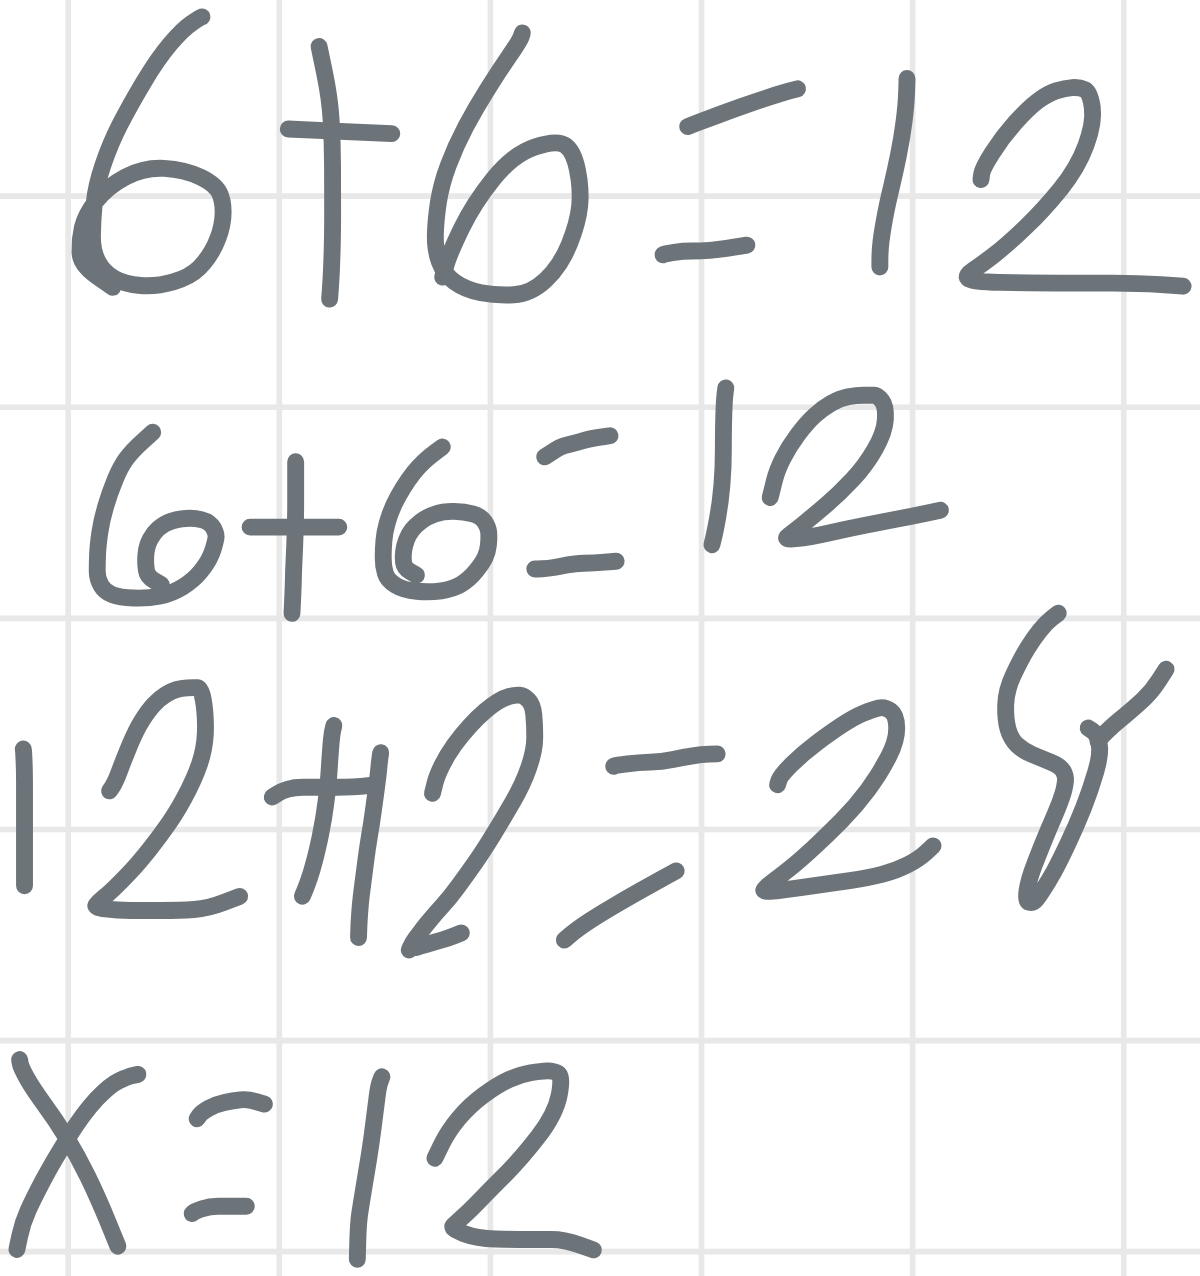 6+6=12
6+6=12
12+12=24
x=12